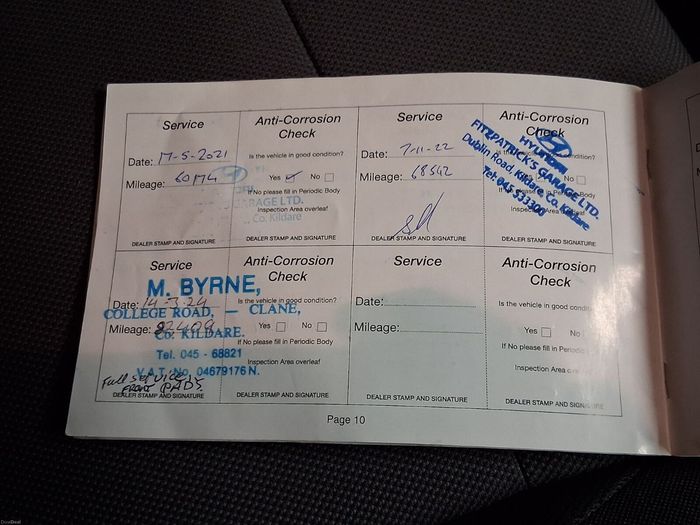 Service
Anti-Corrosion
Check
Date: 17-5-2021
Is the vehicle in good condition?
Mileage:
Yes No
If No please fill in Periodic Body
Inspection Area overleaf
GARAGE LTD.
Co. Kildare
DEALER STAMP AND SIGNATURE
DEALER STAMP AND SIGNATURE
Service
Anti-Corrosion
Check
Date: 7-11-22
Is the vehicle in good condition?
Mileage: 68542
Yes No
If No please fill in Periodic Body
Inspection Area overleaf
HYUNDAI
FITZPATRICK'S GARAGE LTD.
Dublin Road, Kildare, Co. Kildare
Tel: 045 533300
DEALER STAMP AND SIGNATURE
DEALER STAMP AND SIGNATURE
Service
Anti-Corrosion
Check
M. BYRNE,
Date: 14-3-24
Is the vehicle in good condition?
COLLEGE ROAD, — CLANE,
Mileage: 82409
Yes No
Co. KILDARE.
If No please fill in Periodic Body
Tel. 045 - 68821
Inspection Area overleaf
V.A.T. No. 04679176 N.
Full SERVICE
FRONT PADS
DEALER STAMP AND SIGNATURE
DEALER STAMP AND SIGNATURE
Service
Anti-Corrosion
Check
Date:
Is the vehicle in good condition?
Mileage:
Yes No
If No please fill in Periodic
Inspection Area
DEALER STAMP AND SIGNATURE
DEALER STAMP AND SIGNATURE
Page 10
DoneDeal